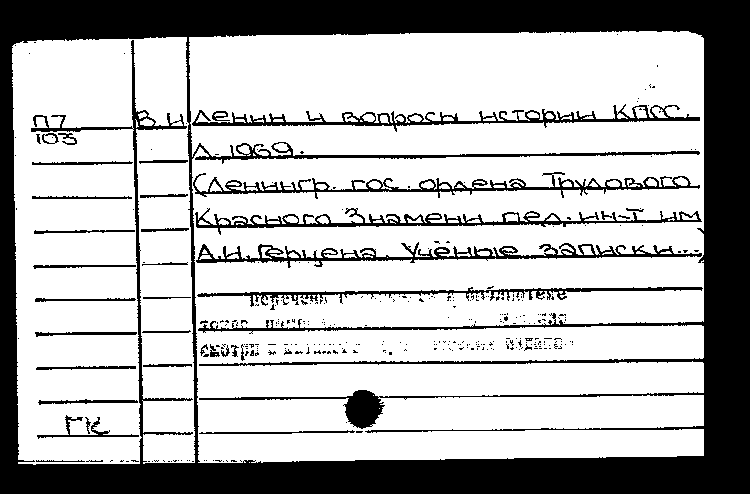 П7 В.И Ленин и вопросы истории КПСС.
103
Л., 1969.
(Ленингр. гос. ордена Трудового
Красного Знамени пед. ин-т им
А.И. Герцена. Учёные записки...)
перечень библиотеке
томов,
смотри в издания
ГК